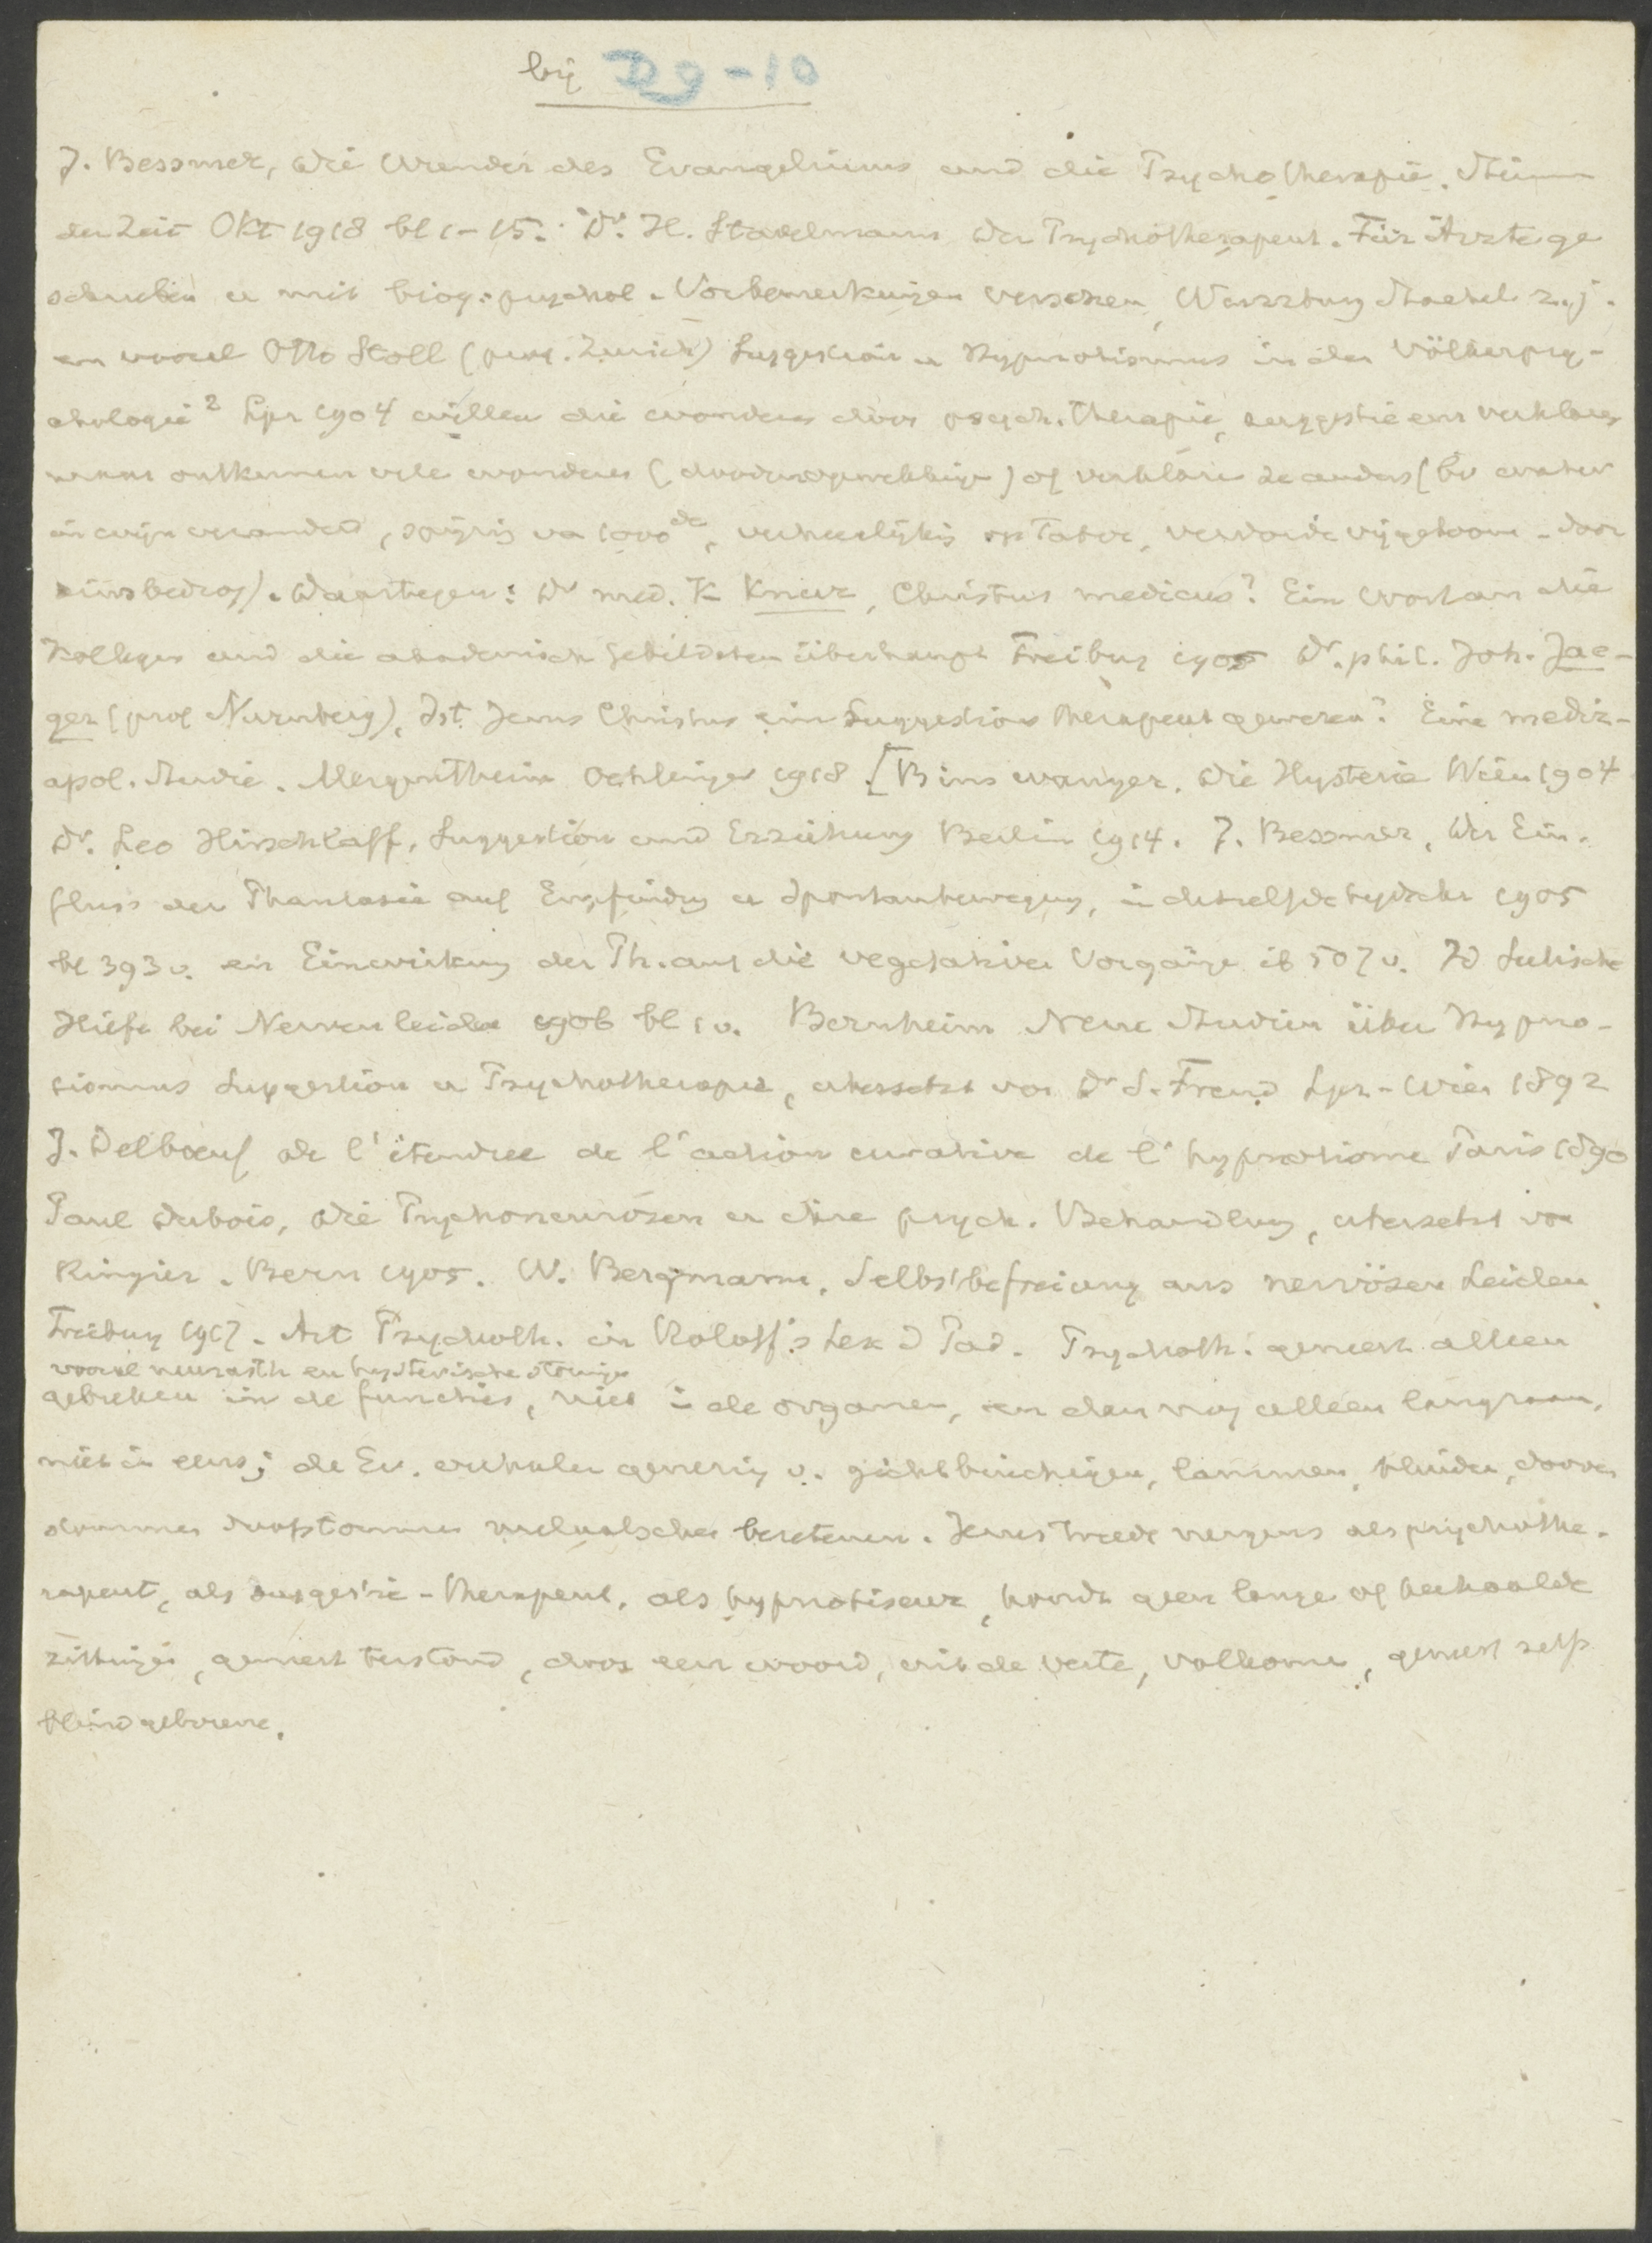 bij D9-10
J. Bessmer, Die Wunder des Evangeliums und die Psychotherapie. Stimm
der Zeit Okt 1918 bl 1-15. Dr. H. Stadelmann Der Psychotherapeut. Für Ärzte ge
schrieben u mit biog. psychol. Vorbemerkungen versehen, Wurzburg Stahel z.j.
en vooral Otto Stoll (prof. Zurich) Suggestion u Hypnotismus in der Völkerpsy-
chologie² Lpz 1904 willen die wonderen door psych. therapie, suggestie enz verklaren
maar ontkennen vele wonderen (doodenopwekking) of verklaren ze anders (bv water
in wijn veranderd, spijzig van 1000de, verheerlijkig op Tabor, verdorde vijgeboom - door
zinsbedrog). Daartegen: Dr med. K Kneur, Christus medicus? Ein Wort an die
Kollegen und die akademisch Gebildeten überhaupt Freiburg 1905 Dr. phil. Joh. Jae-
ger (prof Nurnberg), Ist Jesus Christus ein Suggestions therapeut gewesen? Eine mediz-
apol. Studie. Mergentheim Ochlinger 1918 [Binswanger, Die Hysterie Wien 1904
Dr. Leo Hirschlaff, Suggestion und Erziehung Berlin 1914. J. Bessmer, Der Ein-
fluss der Phantasie auf Empfindg u Spontanbewegung, in dezelfde tijdschr 1905
bl 393v. en Einwirkung der Ph. auf die vegetativen Vorgänge ib 507v. Id Seelische
Hilfe bei Nervenleiden 1906 bl 1v. Bernheim Neue Studien über Hypno-
tismus Suggestion u Psychotherapie, übersetzt von Dr S. Freud Lpz-Wien 1892
J. Delboeuf de l'étendue de l'action curative de l'hypnotisme Paris 1890
Paul Dubois, Die Psychoneurosen u ihre psych. Behandlung, übersetzt von
Ringier. Bern 1905. W. Bergmann, Selbstbefreiung aus nervösen Leiden
Freiburg 1917. Art Psychoth. in Roloff's Lex d Pad. Psychoth. geneest alleen
vooral neurasth en hysterische storingen
gebreken in de functies, niet in de organen, en dan nog alleen langzaam,
niet in eens; de Ev. verhalen genezing v. gichtbruchigen, lammen, blinden, dooven
stommen doofstommen melaatschen bezetenen. Jezus treedt nergens als psychothe-
rapeut, als suggestie-therapeut, als hypnotiseur, houdt geen lange of herhaalde
zittingen, geneest terstond, door een woord, uit de verte, volkomen, geneest zelfs
blindgeborene.